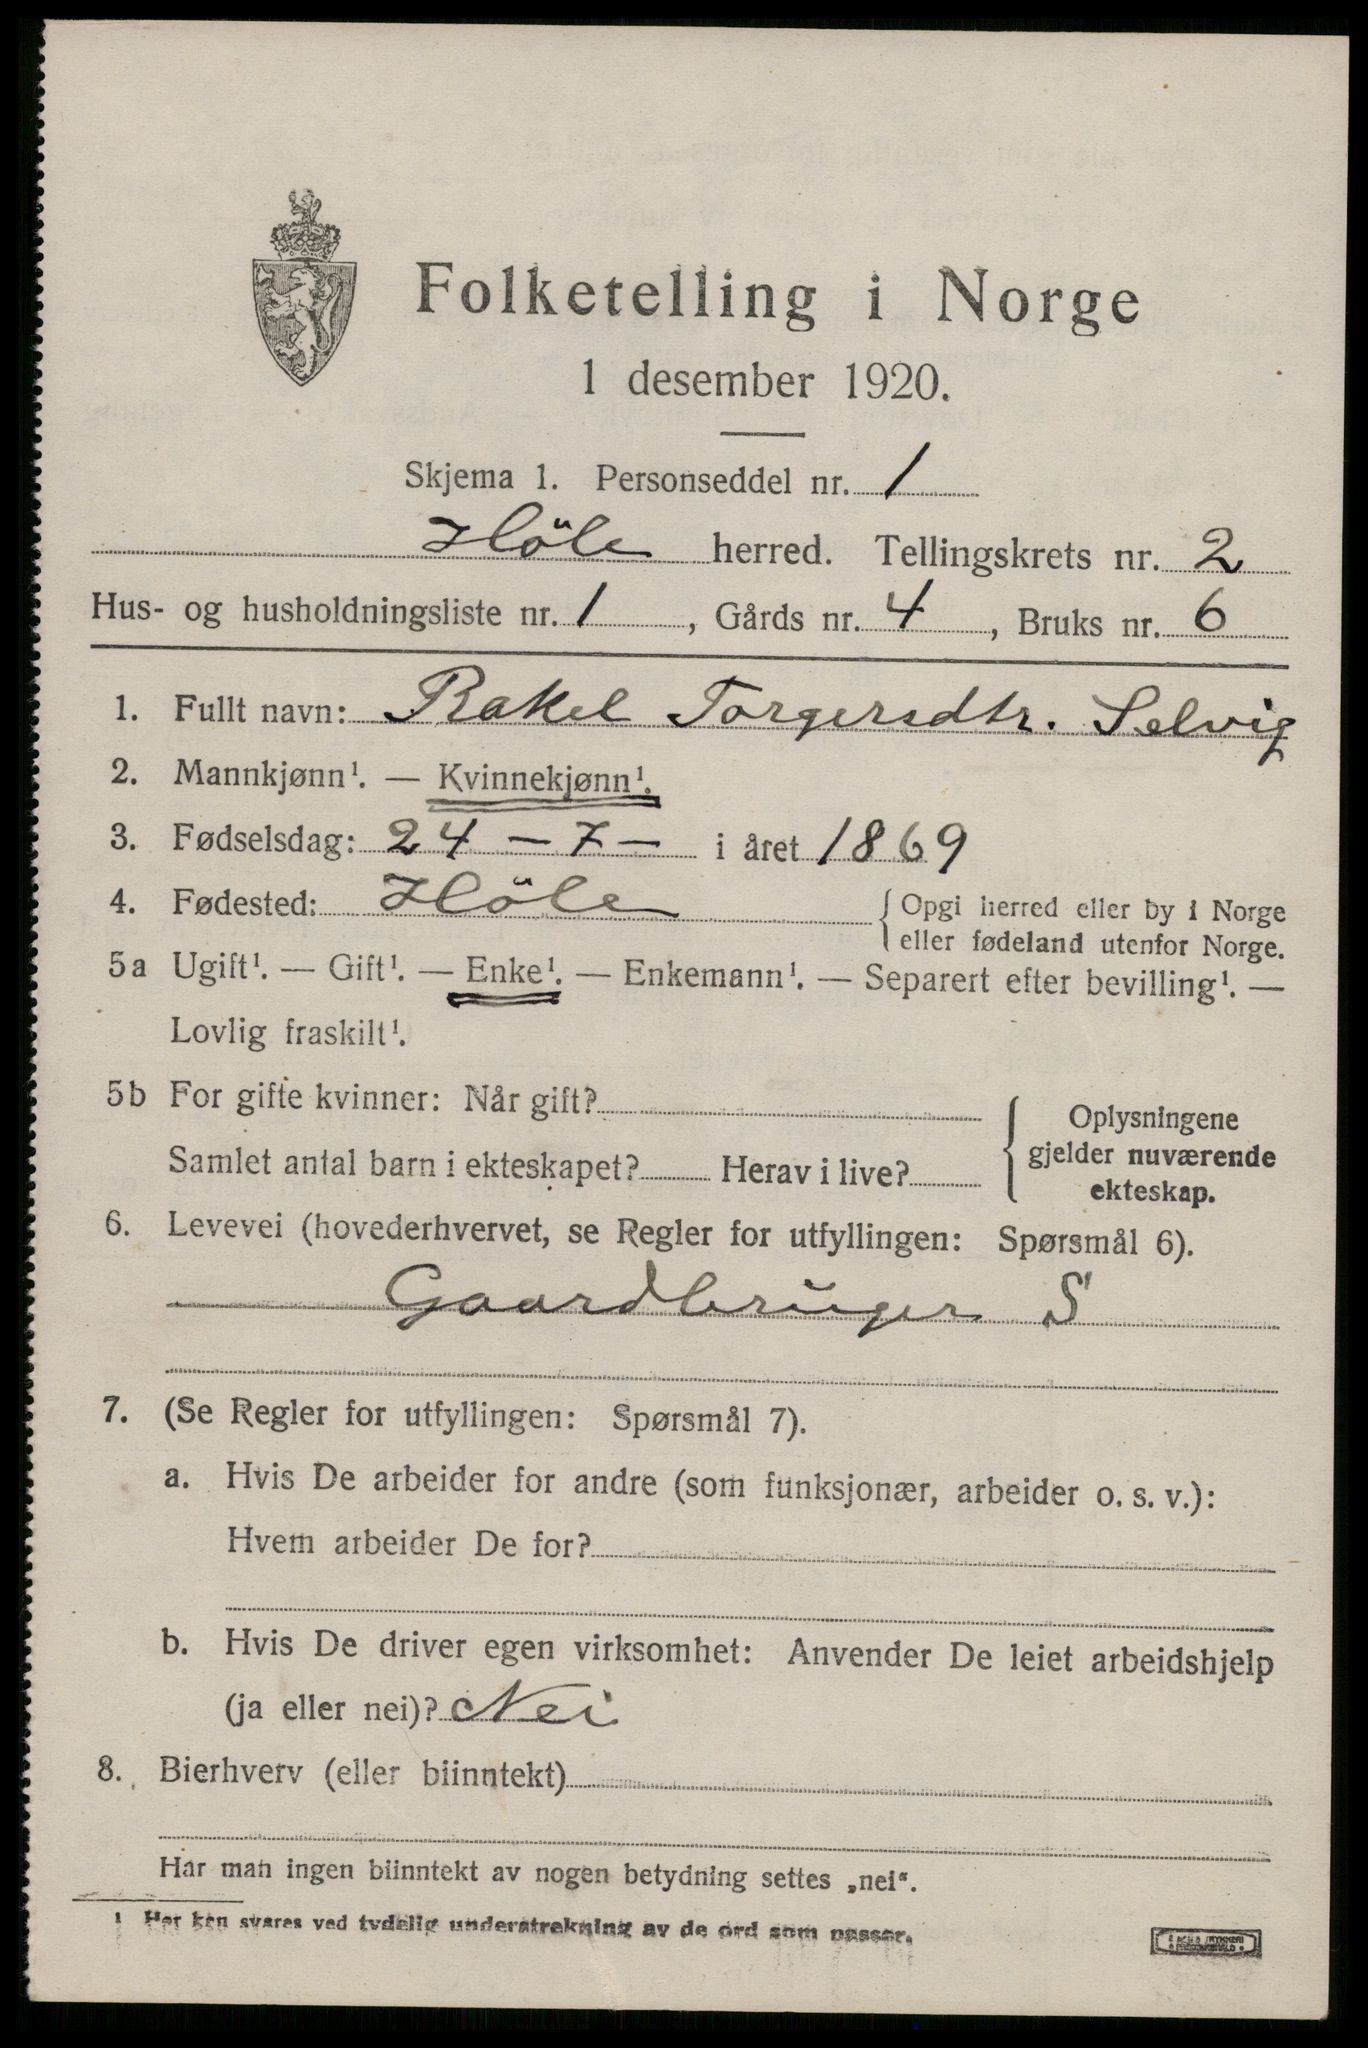 Folketelling i Norge
1 desember 1920.
Skjema 1. Personseddel nr. 1
Höle herred. Tellingskrets nr. 2
Hus- og husholdningsliste nr. 1, Gårds nr. 4, Bruks nr. 6
1. Fullt navn: Rakel Torgersdtr. Selvig
2. Mannkjønn¹. — Kvinnekjønn¹.
3. Fødselsdag: 24 – 7 – i året 1869
4. Fødested: Höle { Opgi herred eller by i Norge
eller fødeland utenfor Norge.
5a Ugift¹. — Gift¹. — Enke¹. — Enkemann¹. — Separert efter bevilling¹. —
Lovlig fraskilt¹.
5b For gifte kvinner: Når gift?
Samlet antal barn i ekteskapet? Herav i live?
Oplysningene
gjelder nuværende
ekteskap.
6. Levevei (hovederhvervet, se Regler for utfyllingen: Spørsmål 6).
Gaardbruger S
7. (Se Regler for utfyllingen: Spørsmål 7).
a. Hvis De arbeider for andre (som funksjonær, arbeider o. s. v.):
Hvem arbeider De for?
b. Hvis De driver egen virksomhet: Anvender De leiet arbeidshjelp
(ja eller nei)? Nei
8. Bierhverv (eller biinntekt)
Har man ingen biinntekt av nogen betydning settes „nei“.
¹ Her kan svares ved tydelig understrekning av de ord som passer.